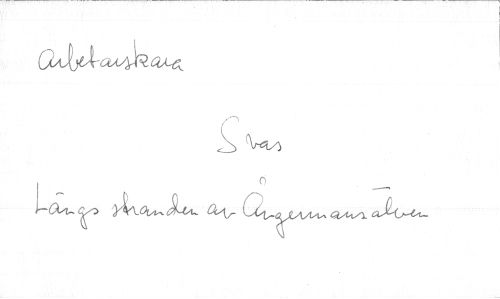 Arbetarskara
Svas
Längs stranden av Ångermansälven